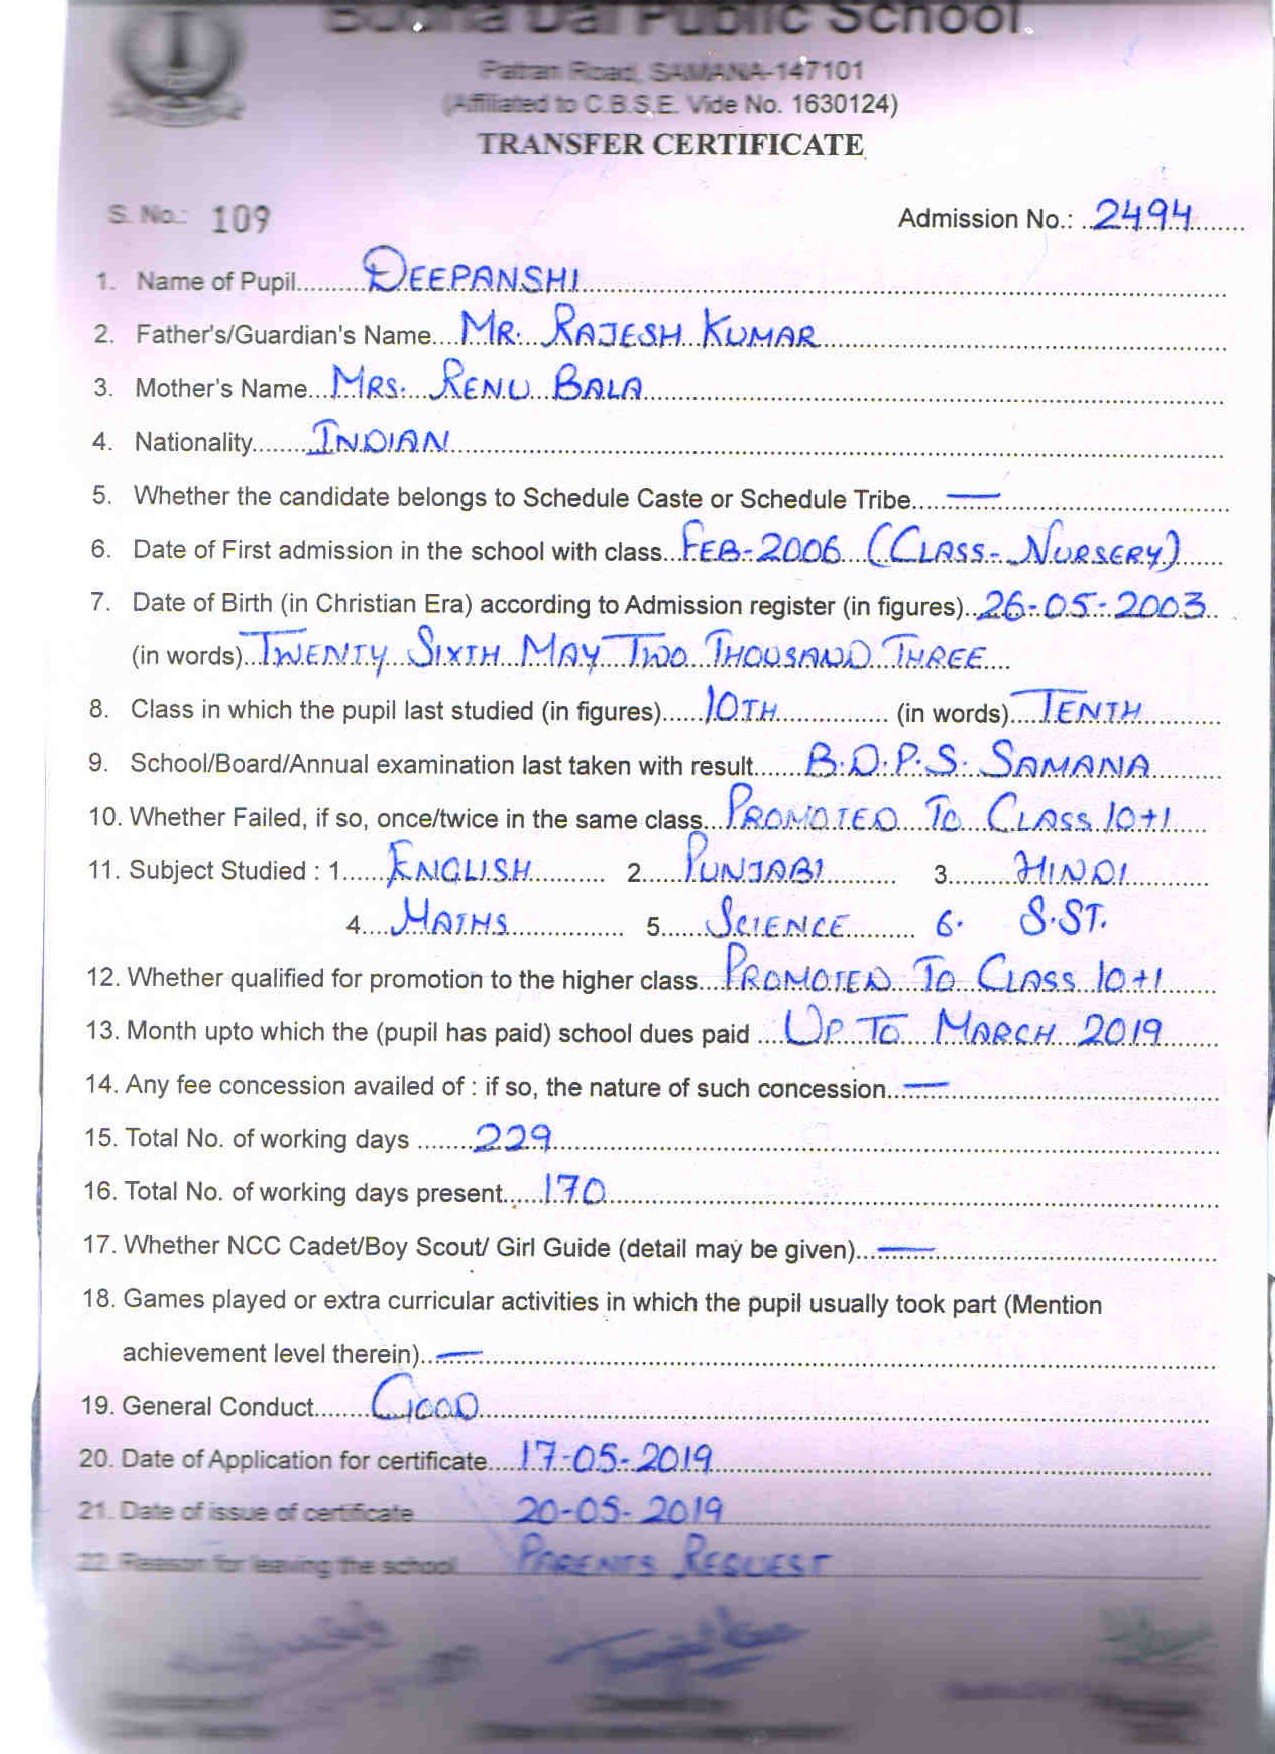 Budha Dal Public School
Patran Road, SAMANA-147101
(Affiliated to C.B.S.E. Vide No. 1630124)
TRANSFER CERTIFICATE
S. No.: 109 Admission No.: 2494
1. Name of Pupil DEEPANSHI
2. Father's/Guardian's Name MR. RAJESH KUMAR
3. Mother's Name MRS. RENU BALA
4. Nationality INDIAN
5. Whether the candidate belongs to Schedule Caste or Schedule Tribe —
6. Date of First admission in the school with class FEB-2006 (CLASS-NURSERY)
7. Date of Birth (in Christian Era) according to Admission register (in figures) 26-05-2003
(in words) TWENTY SIXTH MAY TWO THOUSAND THREE
8. Class in which the pupil last studied (in figures) 10TH (in words) TENTH
9. School/Board/Annual examination last taken with result B.D.P.S. SAMANA
10. Whether Failed, if so, once/twice in the same class PROMOTED TO CLASS 10+1
11. Subject Studied : 1. ENGLISH 2. PUNJABI 3. HINDI
4. MATHS 5. SCIENCE 6. S.ST.
12. Whether qualified for promotion to the higher class PROMOTED TO CLASS 10+1
13. Month upto which the (pupil has paid) school dues paid UP TO MARCH 2019
14. Any fee concession availed of : if so, the nature of such concession —
15. Total No. of working days 229
16. Total No. of working days present 170
17. Whether NCC Cadet/Boy Scout/ Girl Guide (detail may be given) —
18. Games played or extra curricular activities in which the pupil usually took part (Mention
achievement level therein) —
19. General Conduct GOOD
20. Date of Application for certificate 17-05-2019
21. Date of issue of certificate 20-05-2019
22. Reason for leaving the school PARENTS REQUEST